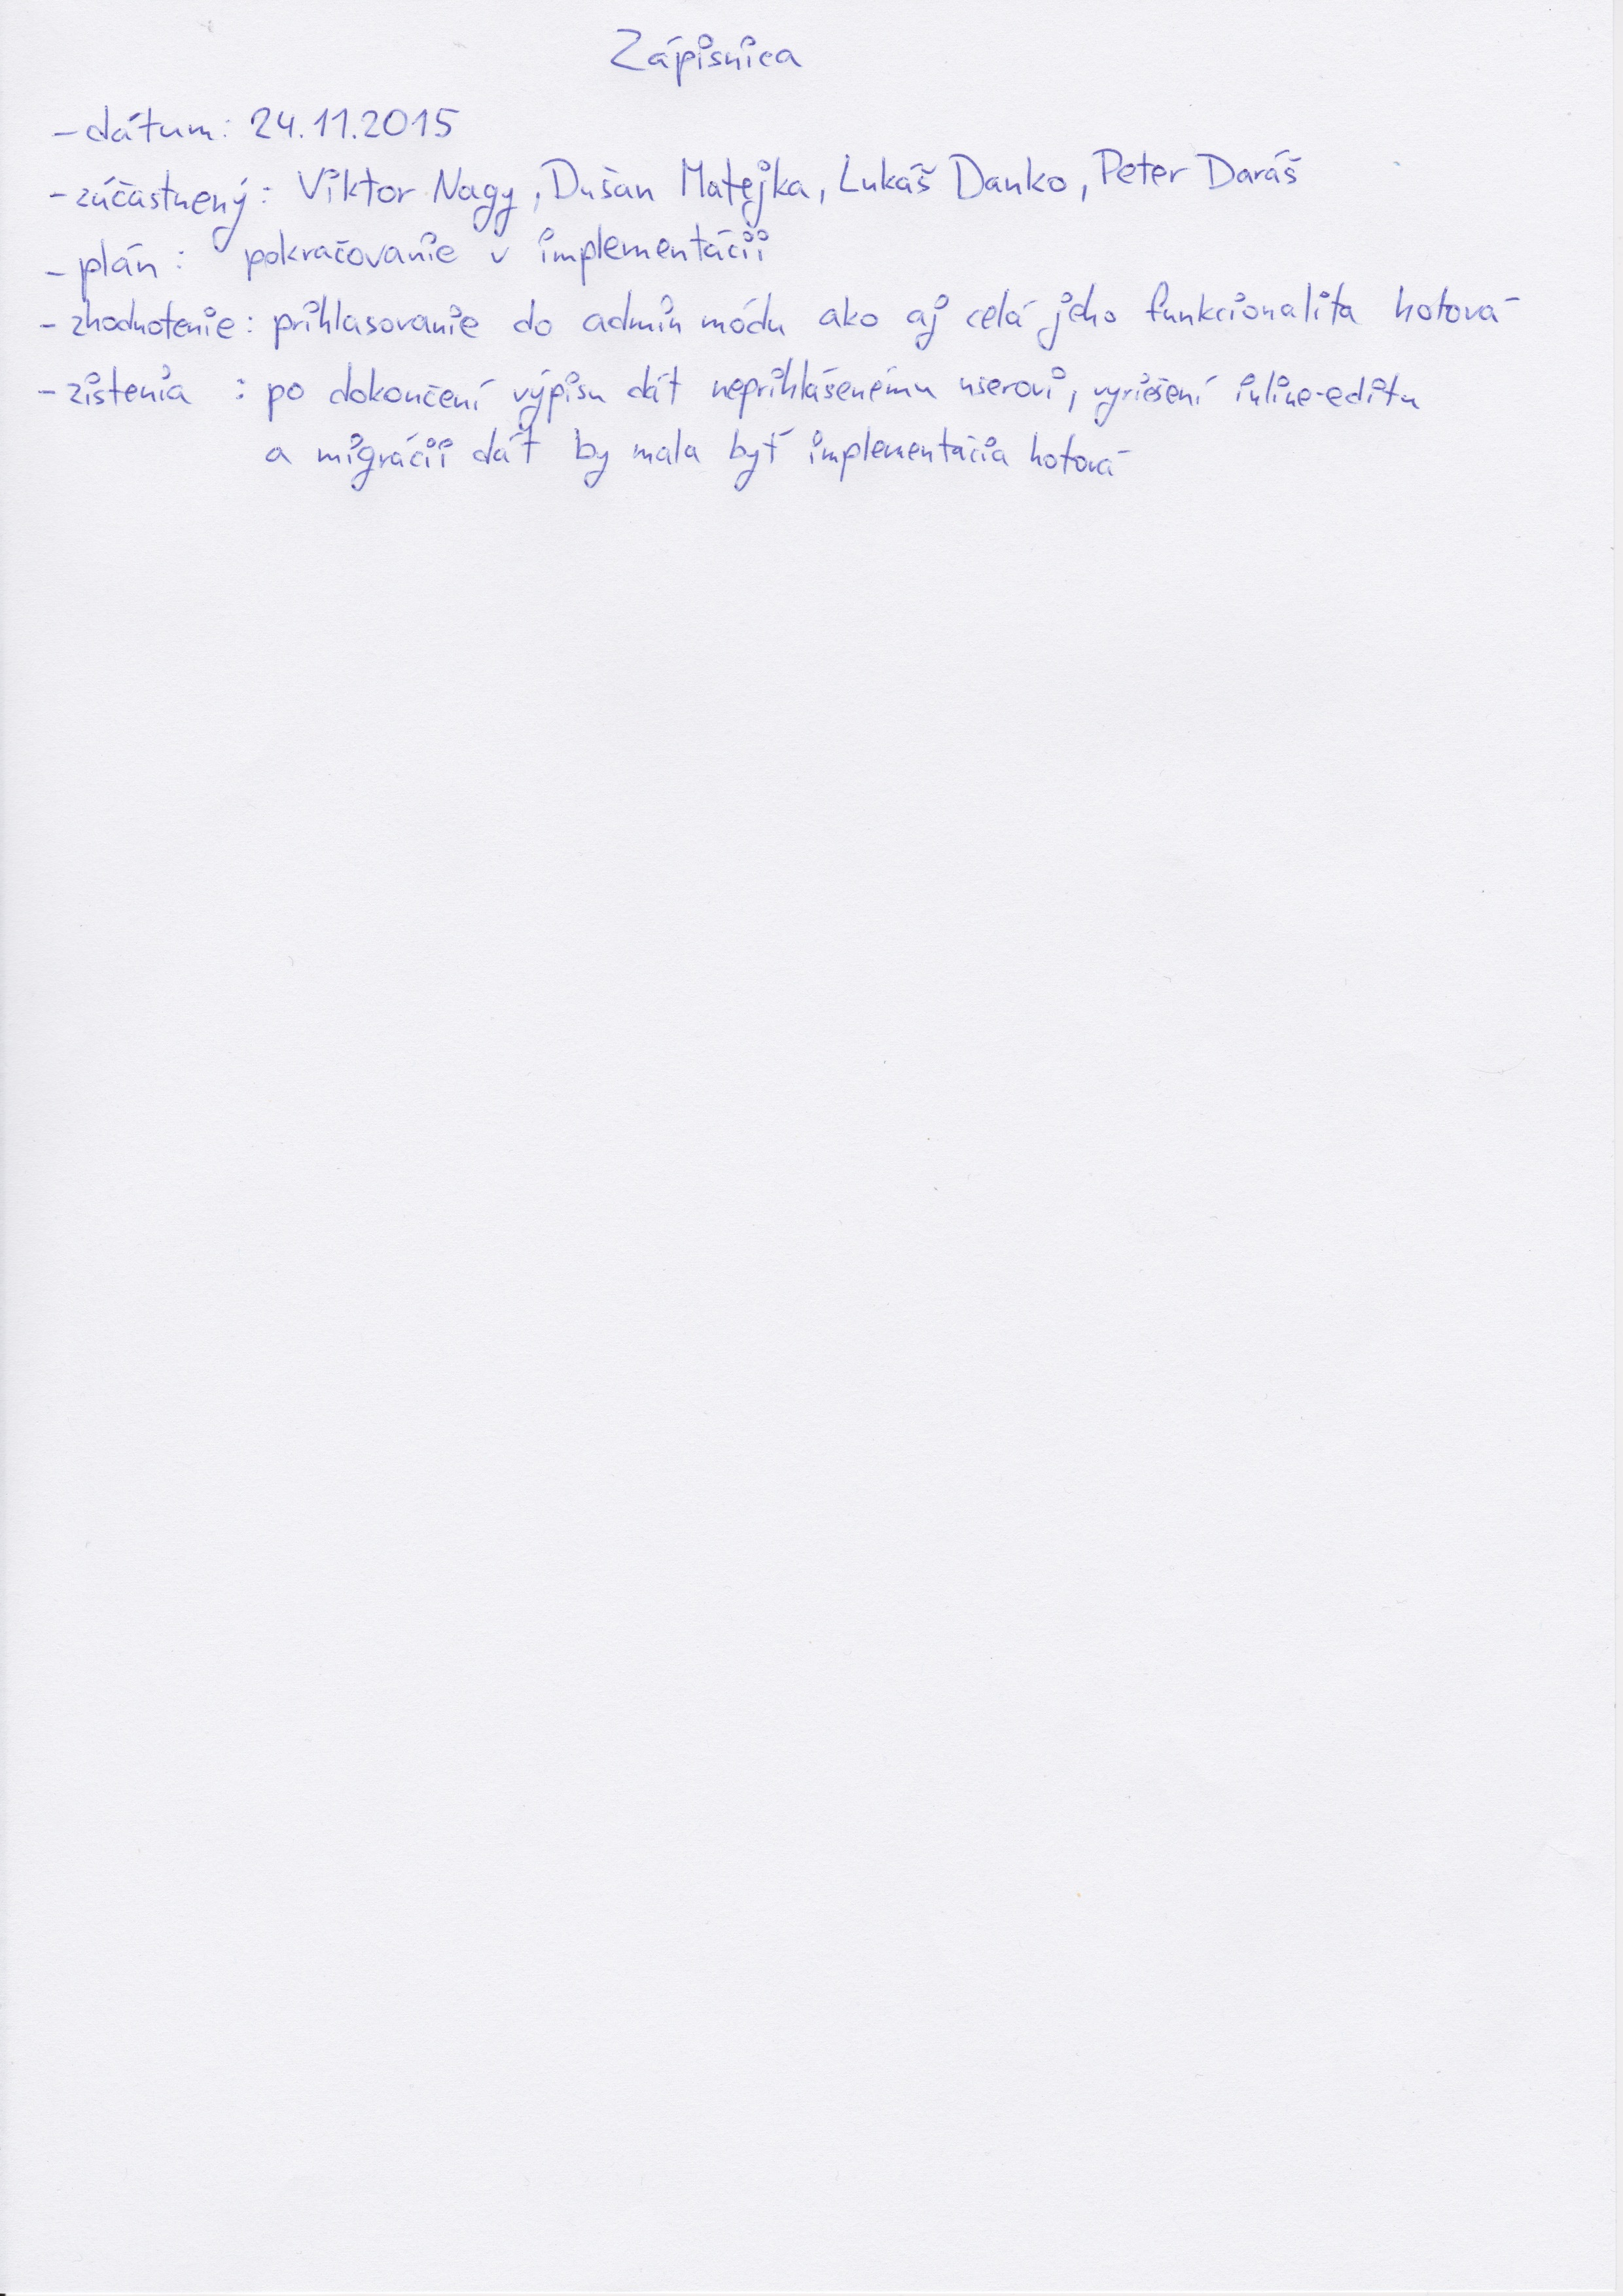 Zápisnica
- dátum: 24.11.2015
- zúčastnený: Viktor Nagy, Dušan Matejka, Lukáš Danko, Peter Daráš
- plán: pokračovanie v implementácii
- zhodnotenie: prihlasovanie do admin módu ako aj celá jeho funkcionalita hotová
- zistenia : po dokončení výpisu dát neprihlásenému userovi, vyriešení inline-editu
a migrácii dát by mala byť implementácia hotová